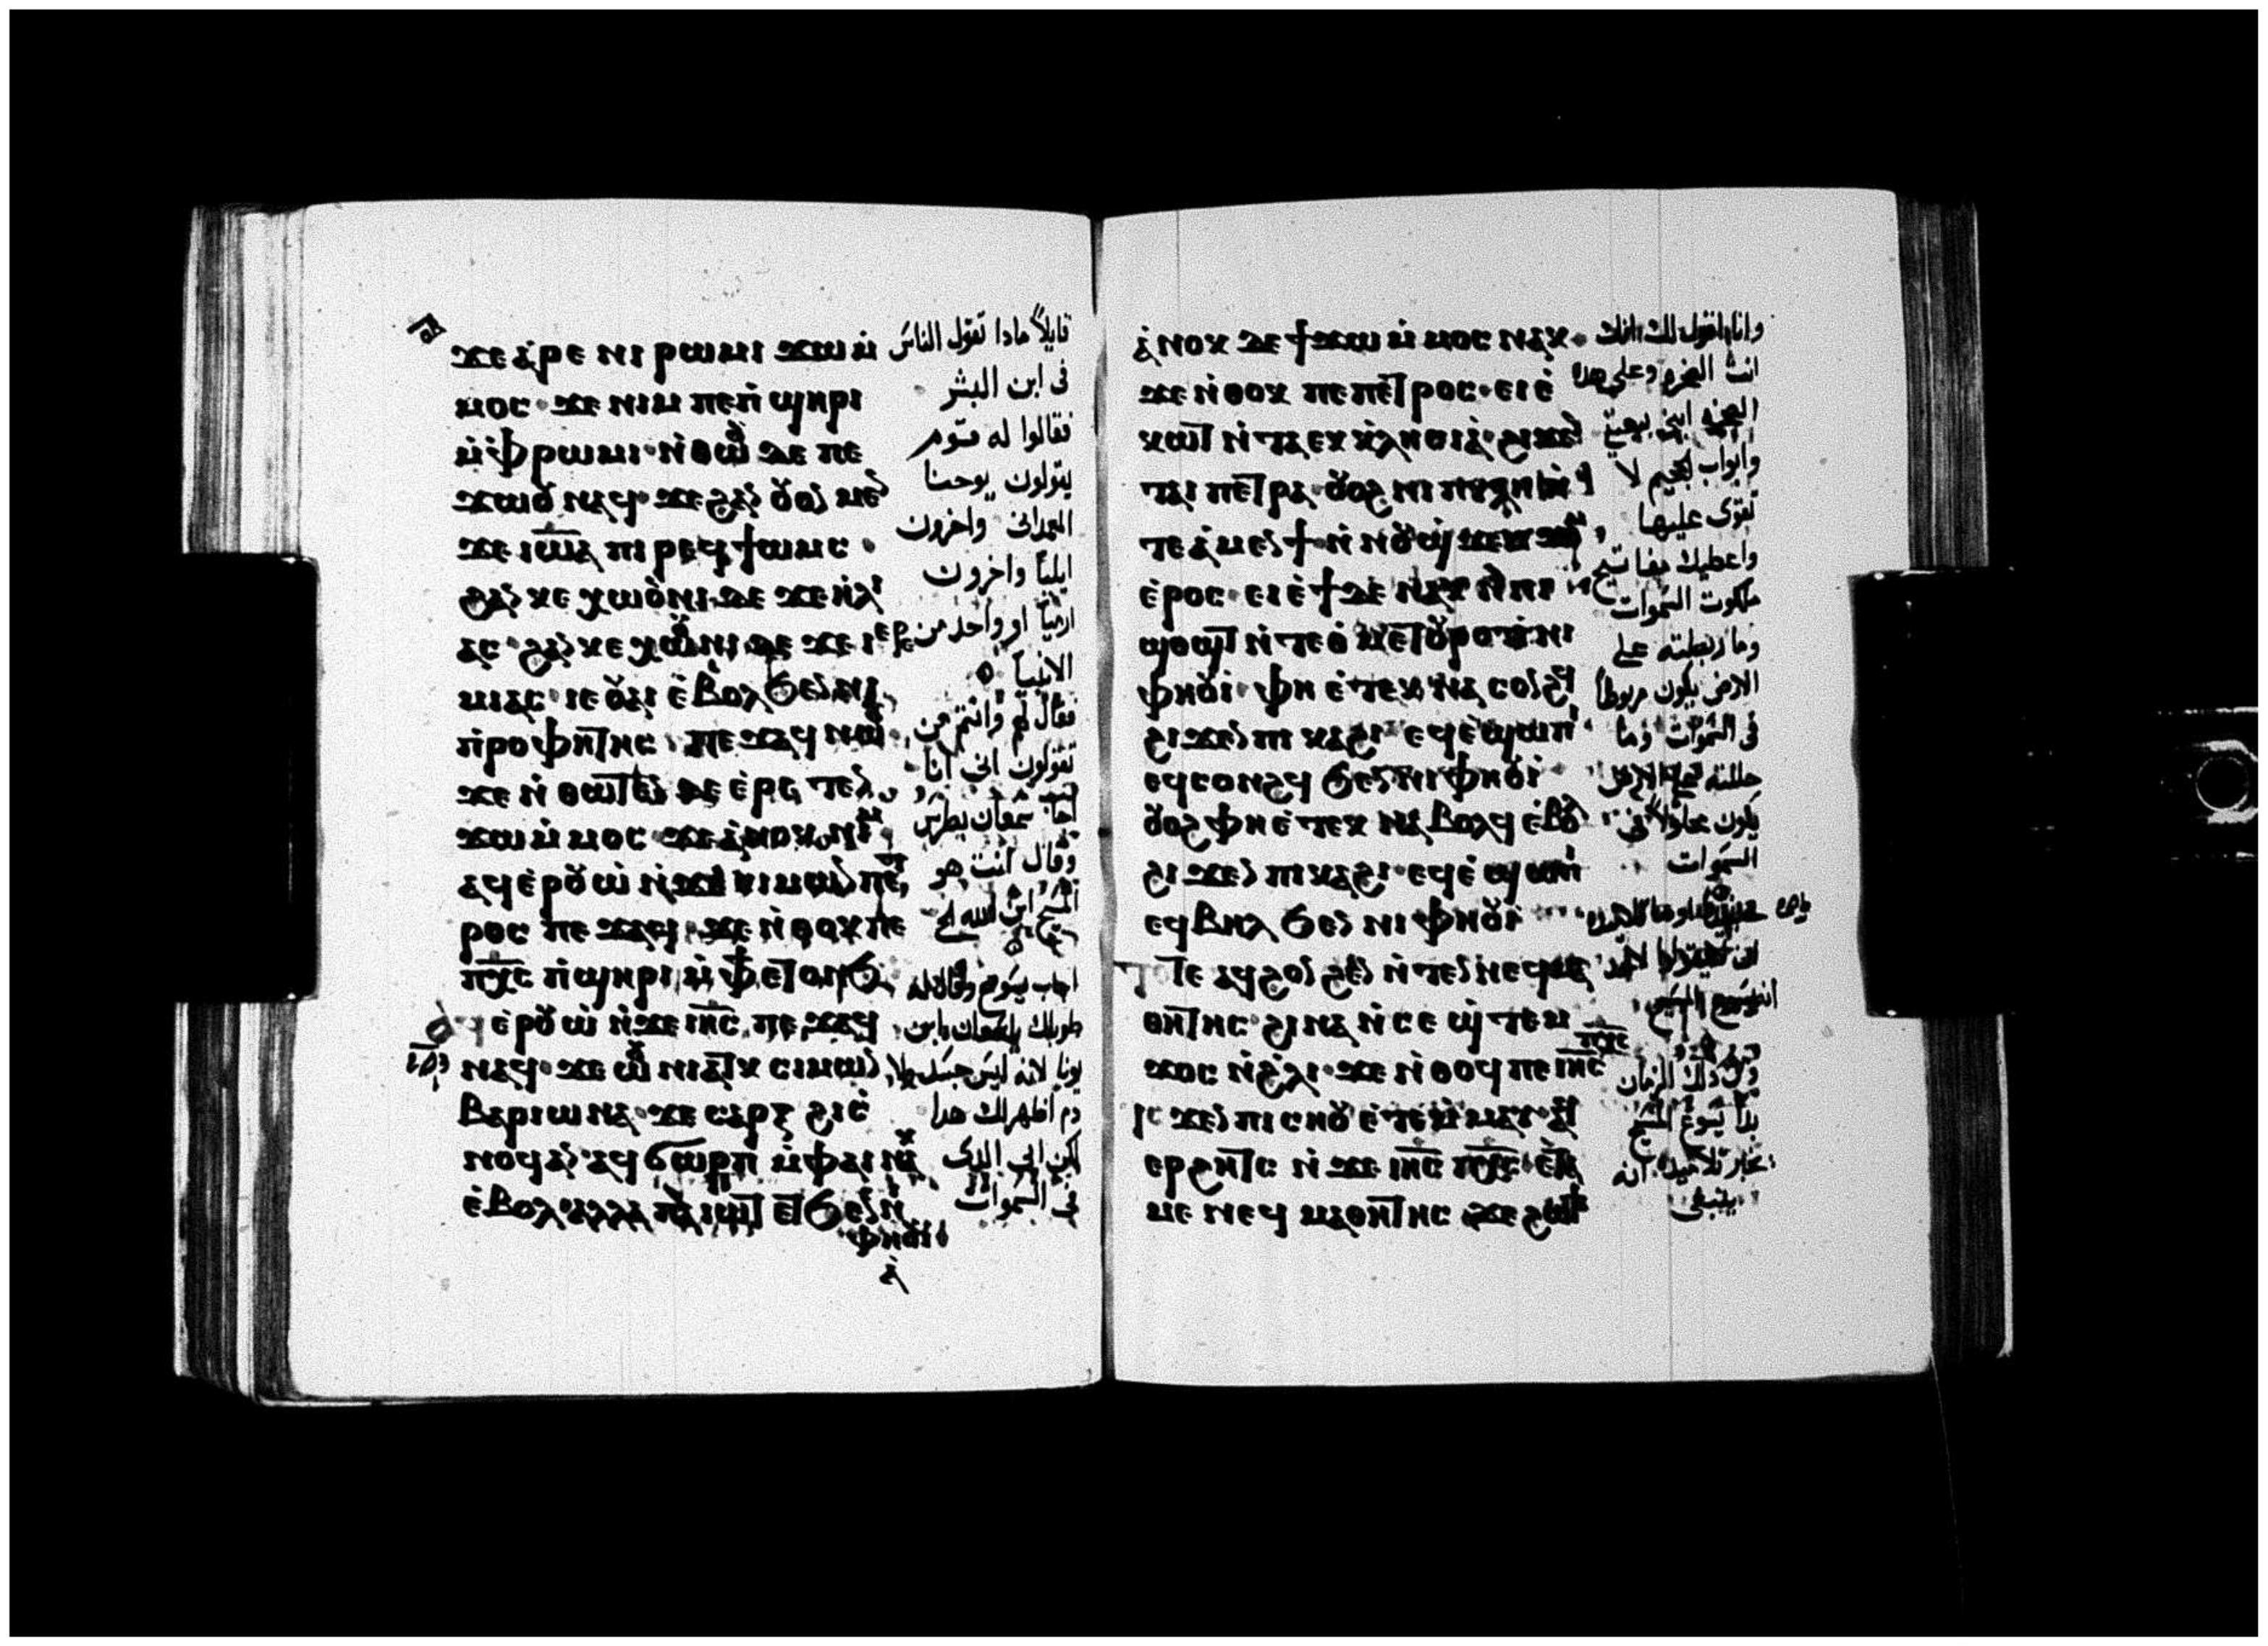 ϫⲉ ⲁ̀ⲣⲉ ⲛⲓ ⲣⲱⲙⲓ ϫⲱ ⲙ̀
ⲙⲟⲥ ϫⲉ ⲛⲓⲙ ⲡⲉ ⲡ̀ϣⲏⲣⲓ
ⲙ̀ⲫⲣⲱⲙⲓ ⲛ̀ⲑⲱⲟⲩ ⲇⲉ ⲡⲉ
ϫⲱⲟⲩ ⲛⲁϥ ϫⲉ ϩⲁⲛ ⲟⲩⲟⲛ ⲙⲉⲛ
ϫⲉ ⲓⲱⲁ ⲡⲓ ⲣⲉϥϯⲱⲙⲥ
ϩⲁⲛ ⲕⲉ ⲭⲱⲟⲩⲛⲓ ⲇⲉ ϫⲉ ⲏ̀ⲗⲓ
ⲁⲥ ϩⲁⲛ ⲕⲉ ⲭⲱⲟⲩⲛⲓ ⲇⲉ ϫⲉ ⲓⲉⲣⲉ
ⲙⲓⲁⲥ ⲓⲉ ⲟⲩⲁⲓ ⲉ̀ⲃⲟⲗ ϧⲉⲛ ⲛⲓ
ⲡ̀ⲣⲟⲫⲏⲧⲏⲥ ⲡⲉϫⲁϥ ⲛⲱⲟⲩ
ϫⲉ ⲛ̀ⲑⲱⲧⲉⲛ ⲇⲉ ⲉ̀ⲣⲉ ⲧⲉⲛ
ϫⲱ ⲙ̀ⲙⲟⲥ ϫⲉ ⲁ̀ⲛⲟⲕ ⲛⲓⲙ
ⲁϥⲉⲣⲟⲩⲱ̀ ⲛ̀ϫⲉ ⲥⲓⲙⲱⲛ ⲡⲉⲧ
ⲣⲟⲥ ⲡⲉϫⲁϥ ϫⲉ ⲛ̀ⲑⲟⲕ ⲡⲉ
ⲡⲭⲥ ⲡ̀ϣⲏⲣⲓ ⲙ̀ⲫϯ ⲉⲧⲟⲛϧ
ⲉⲣⲟⲩⲱ̀ ⲛ̀ϫⲉ ⲓⲏⲥ ⲡⲉϫⲁϥ
ⲛⲁϥ ϫⲉ ⲱⲟⲩ ⲛⲓⲁⲧⲕ ⲥⲓⲙⲱⲛ
ⲃⲁⲣⲓⲱⲛⲁ ϫⲉ ⲥⲁⲣⲝ ϩⲓ ⲥ̀
ⲛⲟϥ ⲁⲛ ⲁϥϭⲱⲣⲡ ⲙ̀ⲫⲁⲓ ⲛⲁⲕ
ⲉ̀ⲃⲟⲗ ⲁⲗⲗⲁ ⲡⲁⲓⲱⲧ ⲉⲧϧⲉⲛ ⲛⲓ
ⲫⲏⲟⲩⲓ
ⲁ̀
قايلاً مادا تقول الناس
فى ابن البشر
فقالوا له قوم
يقولون يوحنا
المعمدانى واخرون
ايليا واخرون
ارميا او واحد من
الانبيا
فقال لهم وانتم من
تقولون انى انا
اجاب سمعان بطرس
وقال انت هو
المسيح ابن الله الحى
اجاب يسوع وقال له
طوباك ياسمعان ابن
يونا لانه ليس جسد ولا
دم اظهر لك هدا
لكن ابى الدى
فى السموات
ⲁ̀ⲛⲟⲕ ⲇⲉ ϯϫⲱ ⲙ̀ⲙⲟⲥ ⲛⲁⲕ
ϫⲉ ⲛ̀ⲑⲟⲕ ⲡⲉ ⲡⲉⲧⲣⲟⲥ ⲉⲓⲉ̀
ⲕⲱⲧ ⲛ̀ⲧⲁⲉⲕⲕ̀ⲗⲏⲥⲓⲁ̀ ϩⲓϫⲉⲛ
ⲧⲁⲓ ⲡⲉⲧⲣⲁ ⲟⲩⲟϩ ⲛⲓ ⲡⲩⲗⲏ ⲛ̀
ⲧⲉ ⲁ̀ⲙⲉⲛϯ ⲛ̀ⲛⲟⲩϣ̀ϫⲉⲙϫⲟⲙ
ⲉ̀ⲣⲟⲥ ⲉⲓⲉ̀ϯ ⲇⲉ ⲛⲁⲕ ⲛ̀ⲛⲓ
ϣⲟϣⲧ ⲛ̀ⲧⲉ ⲑ̀ⲙⲉⲧⲟⲩⲣⲟ ⲛ̀ⲧⲉ ⲛⲓ
ⲫⲏⲟⲩⲓ ⲫⲏ ⲉ̀ⲧⲉⲕ ⲛⲁ ⲥⲟⲛϩϥ
ϩⲓϫⲉⲛ ⲡⲓ ⲕⲁϩⲓ ⲉϥⲉ̀ϣⲱⲡⲓ
ⲉϥⲥⲟⲛϩϥ ϧⲉⲛ ⲛⲓ ⲫⲏⲟⲩⲓ
ⲟⲩⲟϩ ⲫⲏ ⲉ̀ⲧⲉⲕ ⲛⲁ ⲃⲟⲗϥ ⲉ̀ⲃⲟⲗ
ϩⲓϫⲉⲛ ⲡⲓ ⲕⲁϩⲓ ⲉϥⲉ̀ϣⲱⲡⲓ
ⲉϥⲃⲏⲗ ϧⲉⲛ ⲛⲓ ⲫⲏⲟⲩⲓ
ⲧⲟⲧⲉ ⲁϥϩⲟⲛϩⲉⲛ ⲛ̀ⲧⲉⲛ ⲛⲉϥⲙⲁ
ⲑⲏⲧⲏⲥ ϩⲓⲛⲁ ⲛ̀ⲥⲉ ϣ̀ⲧⲉⲙ
ϫⲟⲥ ⲛ̀ϩ̀ⲗⲓ ϫⲉ ⲛ̀ⲑⲟϥ ⲡⲉ ⲓⲏⲥ ⲡⲭⲥ
ⲓⲥϫⲉⲛ ⲡⲓ ⲥⲛⲟⲩ ⲉ̀ⲧⲉⲙ̀ⲙⲁⲩ ⲁϥ
ⲉⲣϩⲏⲧⲥ ⲛ̀ϫⲉ ⲓⲏⲥ ⲡⲭⲥ ⲉ̀ⲧⲁ
ⲙⲉ ⲛⲉϥ ⲙⲁⲑⲏⲧⲏⲥ ϫⲉ ϩⲱϯ
وانا اقول لك انك
انت الصخره وعلى هده
الصخره ابنى بيعتى
وابواب الجحيم لا
تقوى عليها
واعطيك مفاتيح
ملكوت السموات
وما ربطته على
الارض يكون مربوطاً
فى السموات وما
حللته على الارض
يكون محلولاً فى
السموات
ان لا يقولوا لاحد
انه يسوع المسيح
ومن دلك الزمان
بدا يسوع المسيح
يخبر تلاميده انه
ينبغى